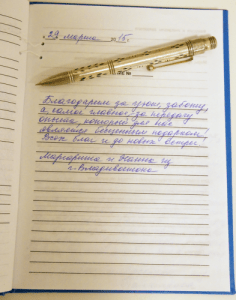 29 марта 2016г.
Благодарим за чуткую заботу
а самое главное за передачу
опыта, который для нас
является бесценным подарком!
Всех благ и до новых встреч!
Маргарита и Жанна
г. Владивосток